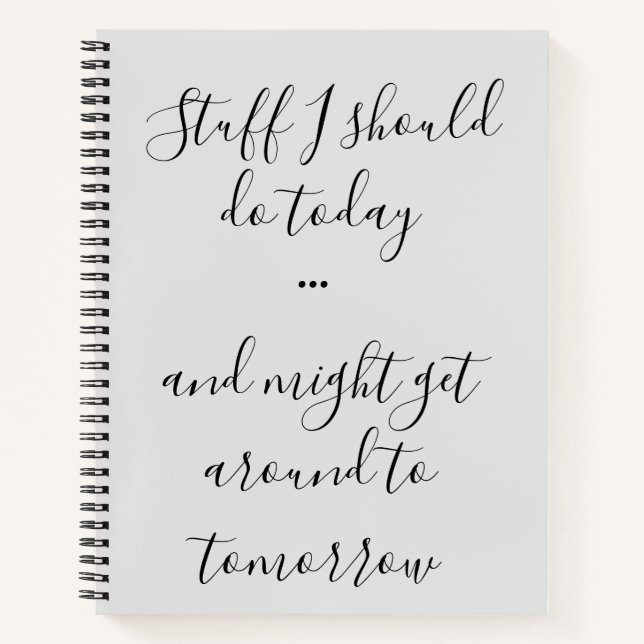 Stuff I should
do today
...
and might get
around to
tomorrow